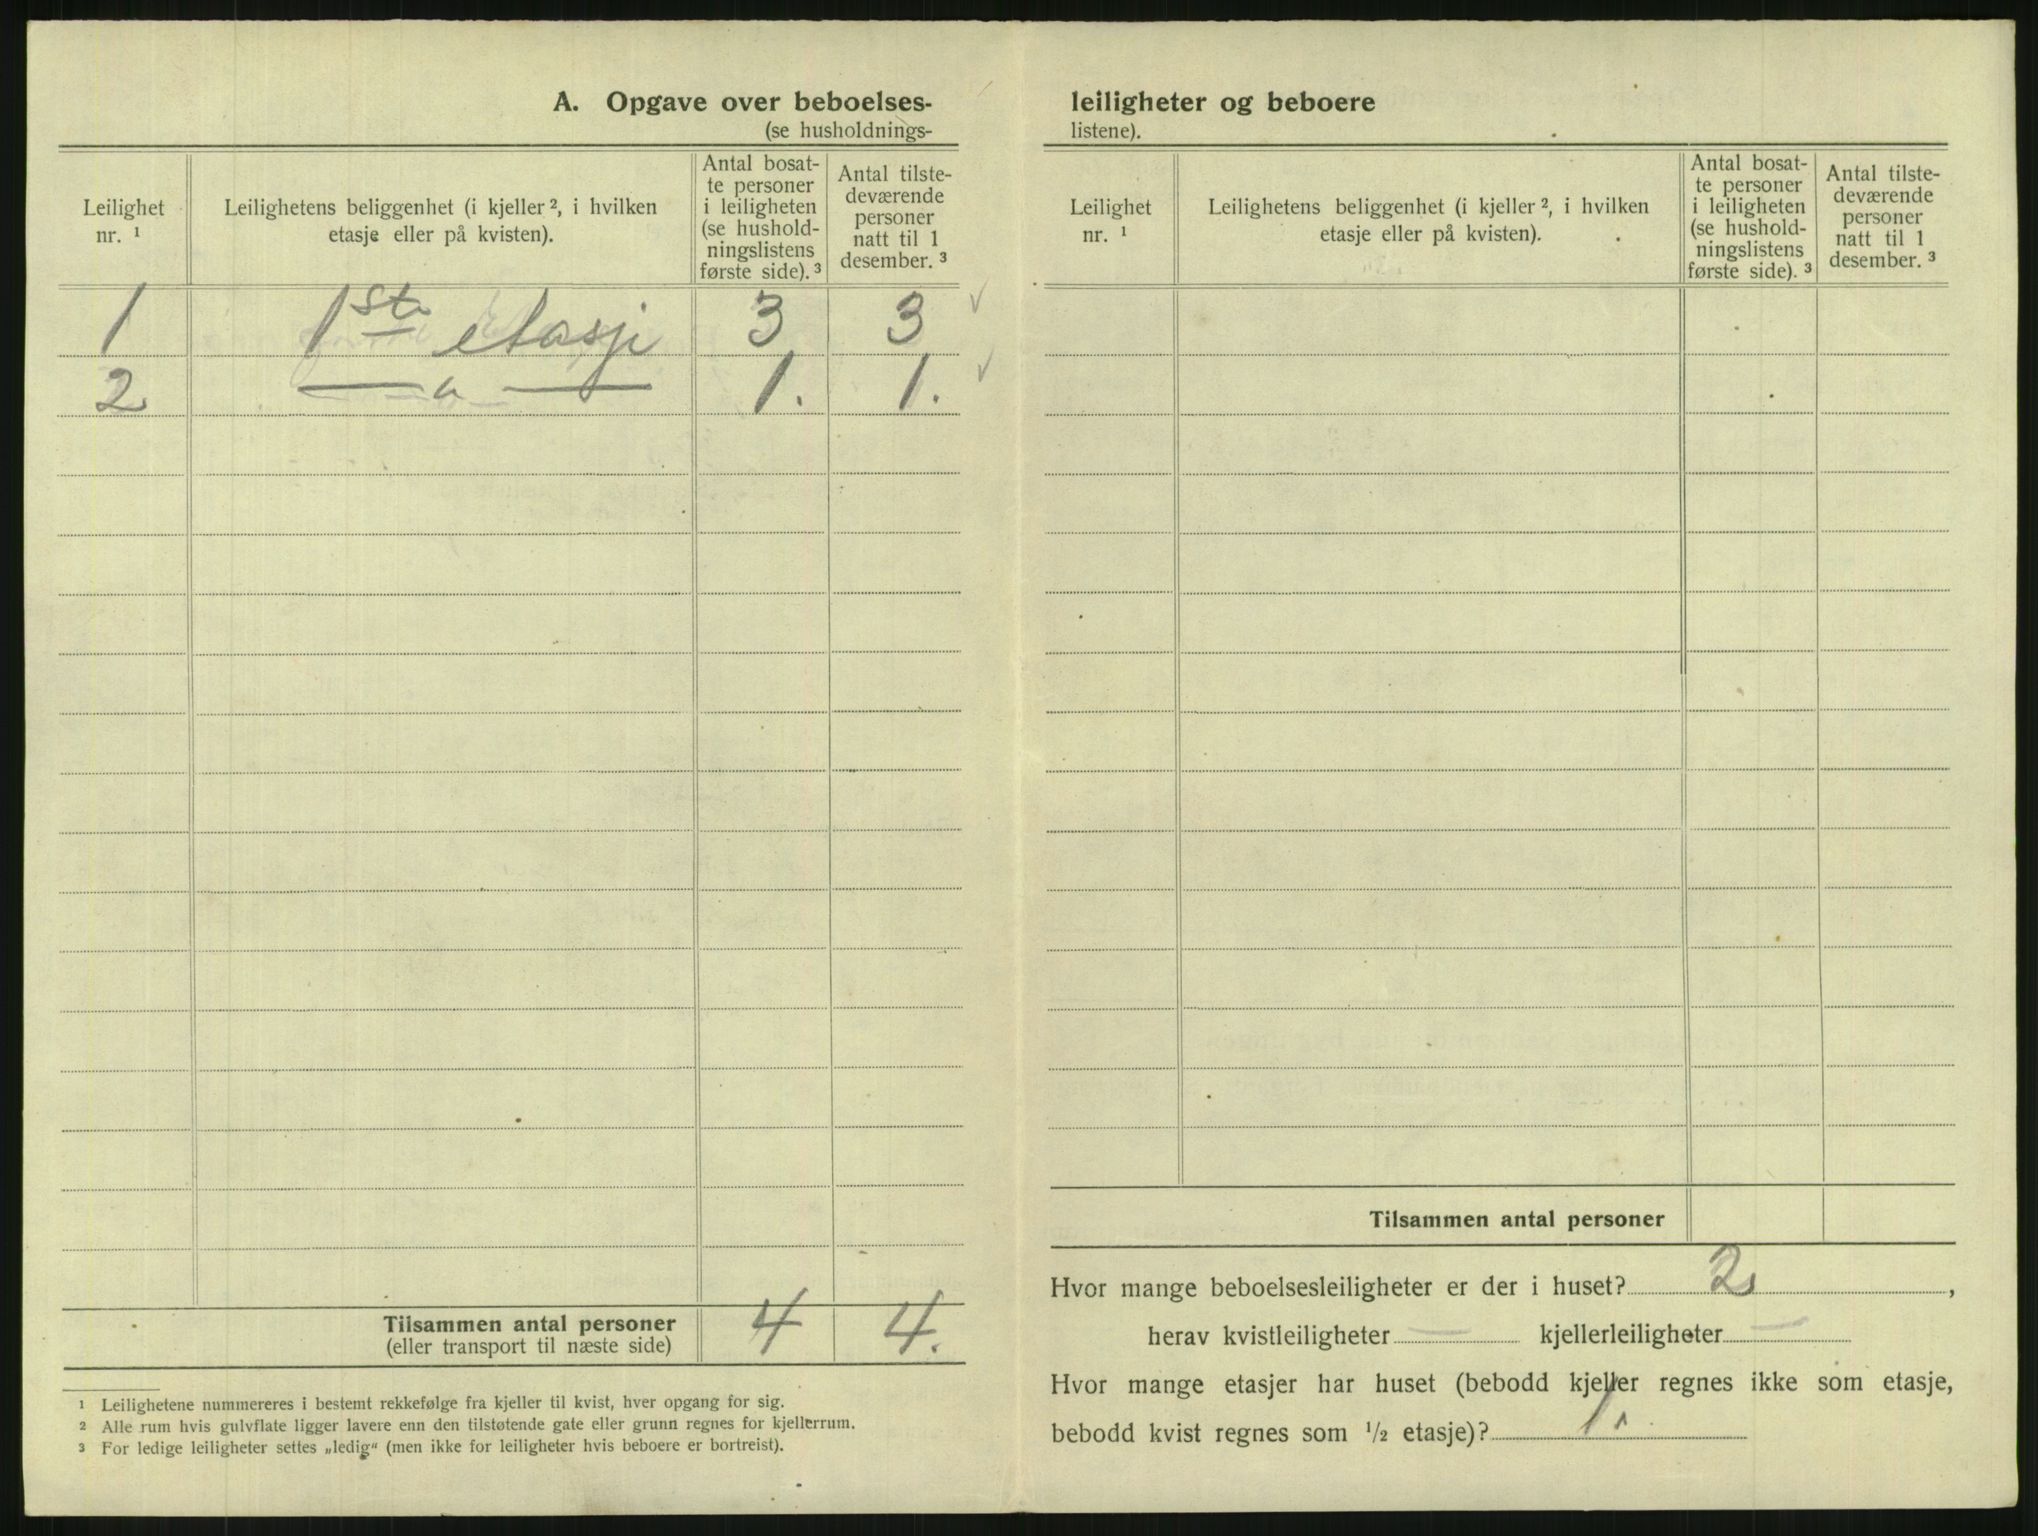 A. Opgave over beboelses-
(se husholdnings-
Leilighet nr. ¹
Leilighetens beliggenhet (i kjeller ², i hvilken
etasje eller på kvisten).
Antal bosat-
te personer
i leiligheten
(se hushold-
ningslistens
første side). ³
Antal tilste-
deværende
personer
natt til 1
desember. ³
1 1ste etasje 3 3 ✓
2 — " — 1. 1. ✓
Tilsammen antal personer 4 4.
(eller transport til næste side)
¹ Leilighetene nummereres i bestemt rekkefølge fra kjeller til kvist, hver opgang for sig.
² Alle rum hvis gulvflate ligger lavere enn den tilstøtende gate eller grunn regnes for kjellerrum.
³ For ledige leiligheter settes „ledig“ (men ikke for leiligheter hvis beboere er bortreist).
leiligheter og beboere
listene).
Leilighet nr. ¹
Leilighetens beliggenhet (i kjeller ², i hvilken
etasje eller på kvisten).
Antal bosat-
te personer
i leiligheten
(se hushold-
ningslistens
første side). ³
Antal tilste-
deværende
personer
natt til 1
desember. ³
Tilsammen antal personer
Hvor mange beboelsesleiligheter er der i huset? 2,
herav kvistleiligheter — kjellerleiligheter —
Hvor mange etasjer har huset (bebodd kjeller regnes ikke som etasje,
bebodd kvist regnes som 1/2 etasje)? 1.